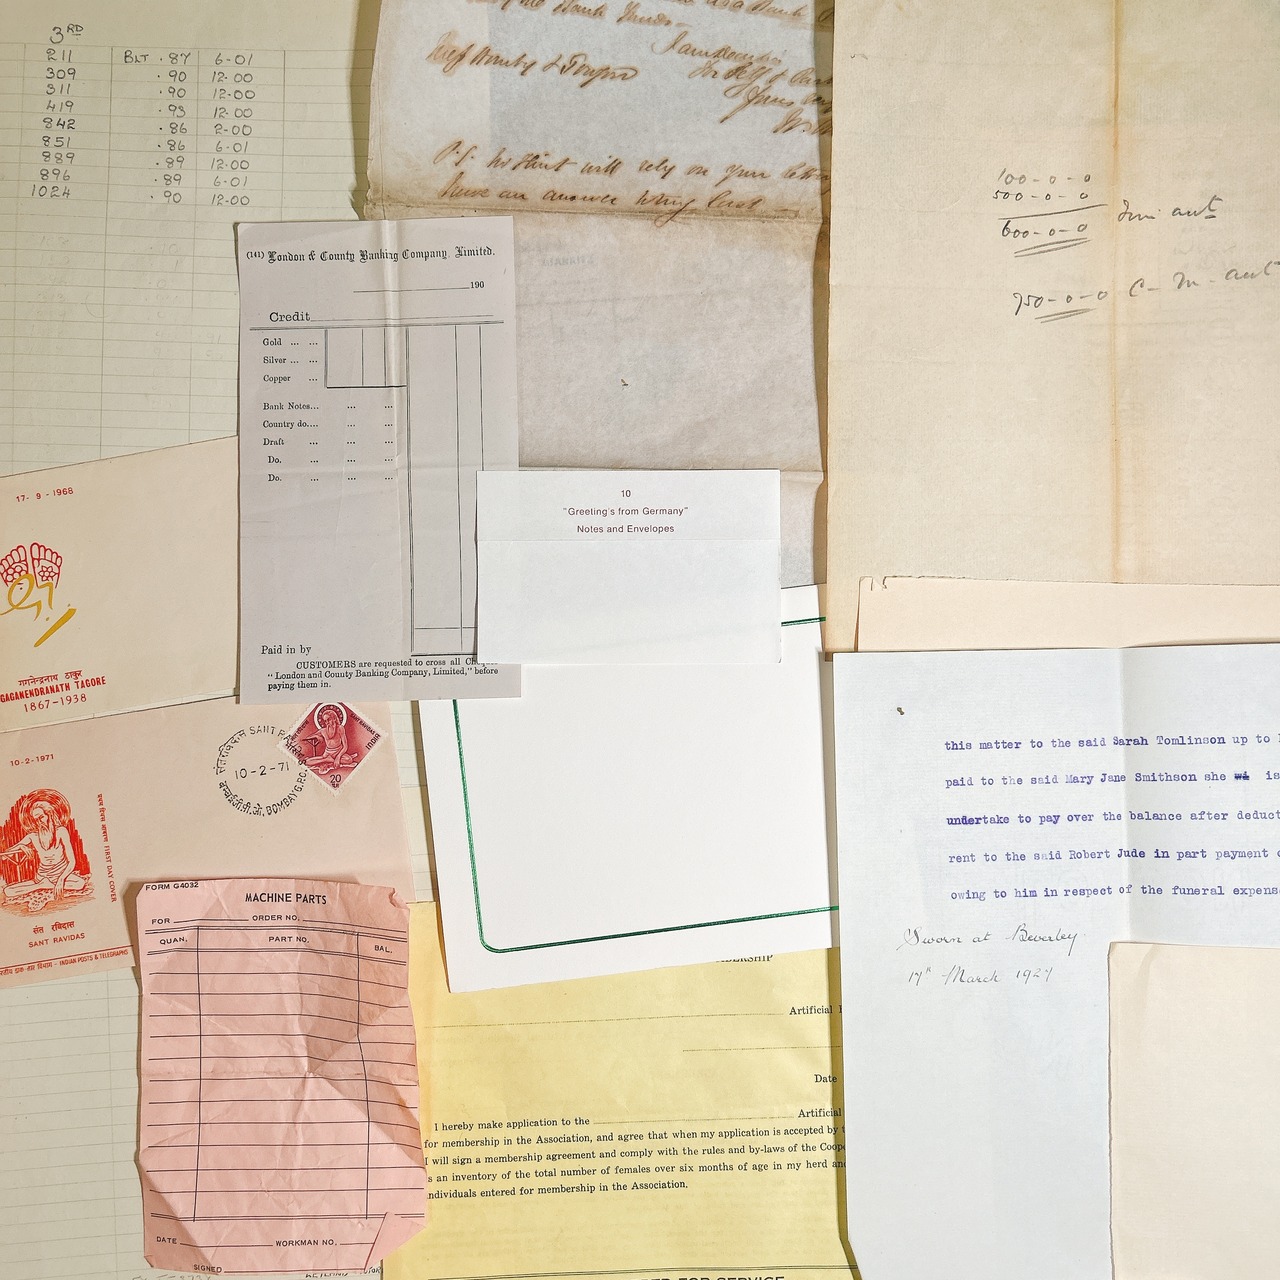 3RD
211 BLT .87 6-01
309 .90 12-00
311 .90 12-00
419 .93 12-00
842 .86 2-00
851 .86 6-01
889 .89 12-00
896 .89 6-01
1024 .90 12-00
P.S. will rely on your
have an answer
100-0-0
500-0-0
600-0-0
750-0-0
(141) London & County Banking Company, Limited.
190
Credit
Gold ... ...
Silver ... ...
Copper ...
Bank Notes... ... ...
Country do.... ... ...
Draft ... ... ...
Do. ... ... ...
Do. ... ... ...
Paid in by
CUSTOMERS are requested to cross all
"London and County Banking Company, Limited," before
paying them in.
10
"Greeting's from Germany"
Notes and Envelopes
17-9-1968
गगनेन्द्रनाथ ठाकुर
GAGANENDRANATH TAGORE
1867-1938
10-2-1971
संत रविदास
SANT RAVIDAS
INDIAN POSTS & TELEGRAPHS
FIRST DAY COVER
10-2-71
BOMBAY G.P.O.
INDIA
20
this matter to the said Sarah Tomlinson up to
paid to the said Mary Jane Smithson she is
undertake to pay over the balance after deduct
rent to the said Robert Jude in part payment
owing to him in respect of the funeral expens
Sworn at Beverley
17th March 1927
FORM G4032
MACHINE PARTS
FOR ORDER NO.
QUAN. PART NO. BAL.
DATE WORKMAN NO.
SIGNED
Artificial
Date
I hereby make application to the Artificial
for membership in the Association, and agree that when my application is accepted by
I will sign a membership agreement and comply with the rules and by-laws of the Coop
is an inventory of the total number of females over six months of age in my herd and
individuals entered for membership in the Association.
FOR SERVICE